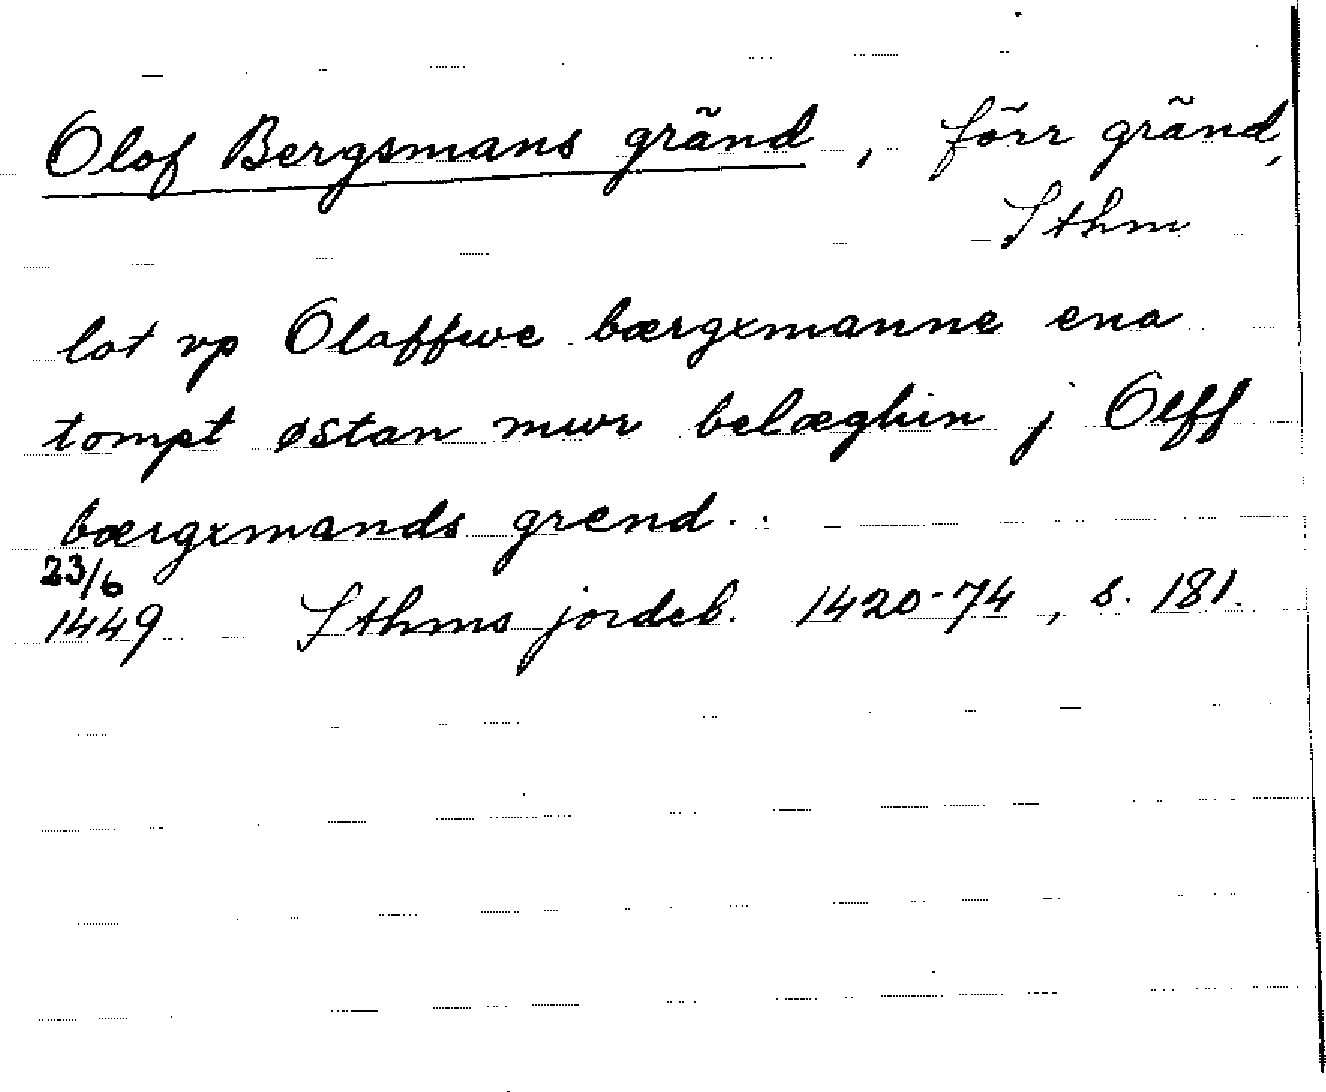 Olof Bergsmans gränd, förr gränd,
Sthm
lot vp Olaffwe bærgxmanne ena
tompt østan mwr belæghin j Olff
bærgxmands grend..
23/6
1449 Sthms jordeb. 1420-74, s. 181.